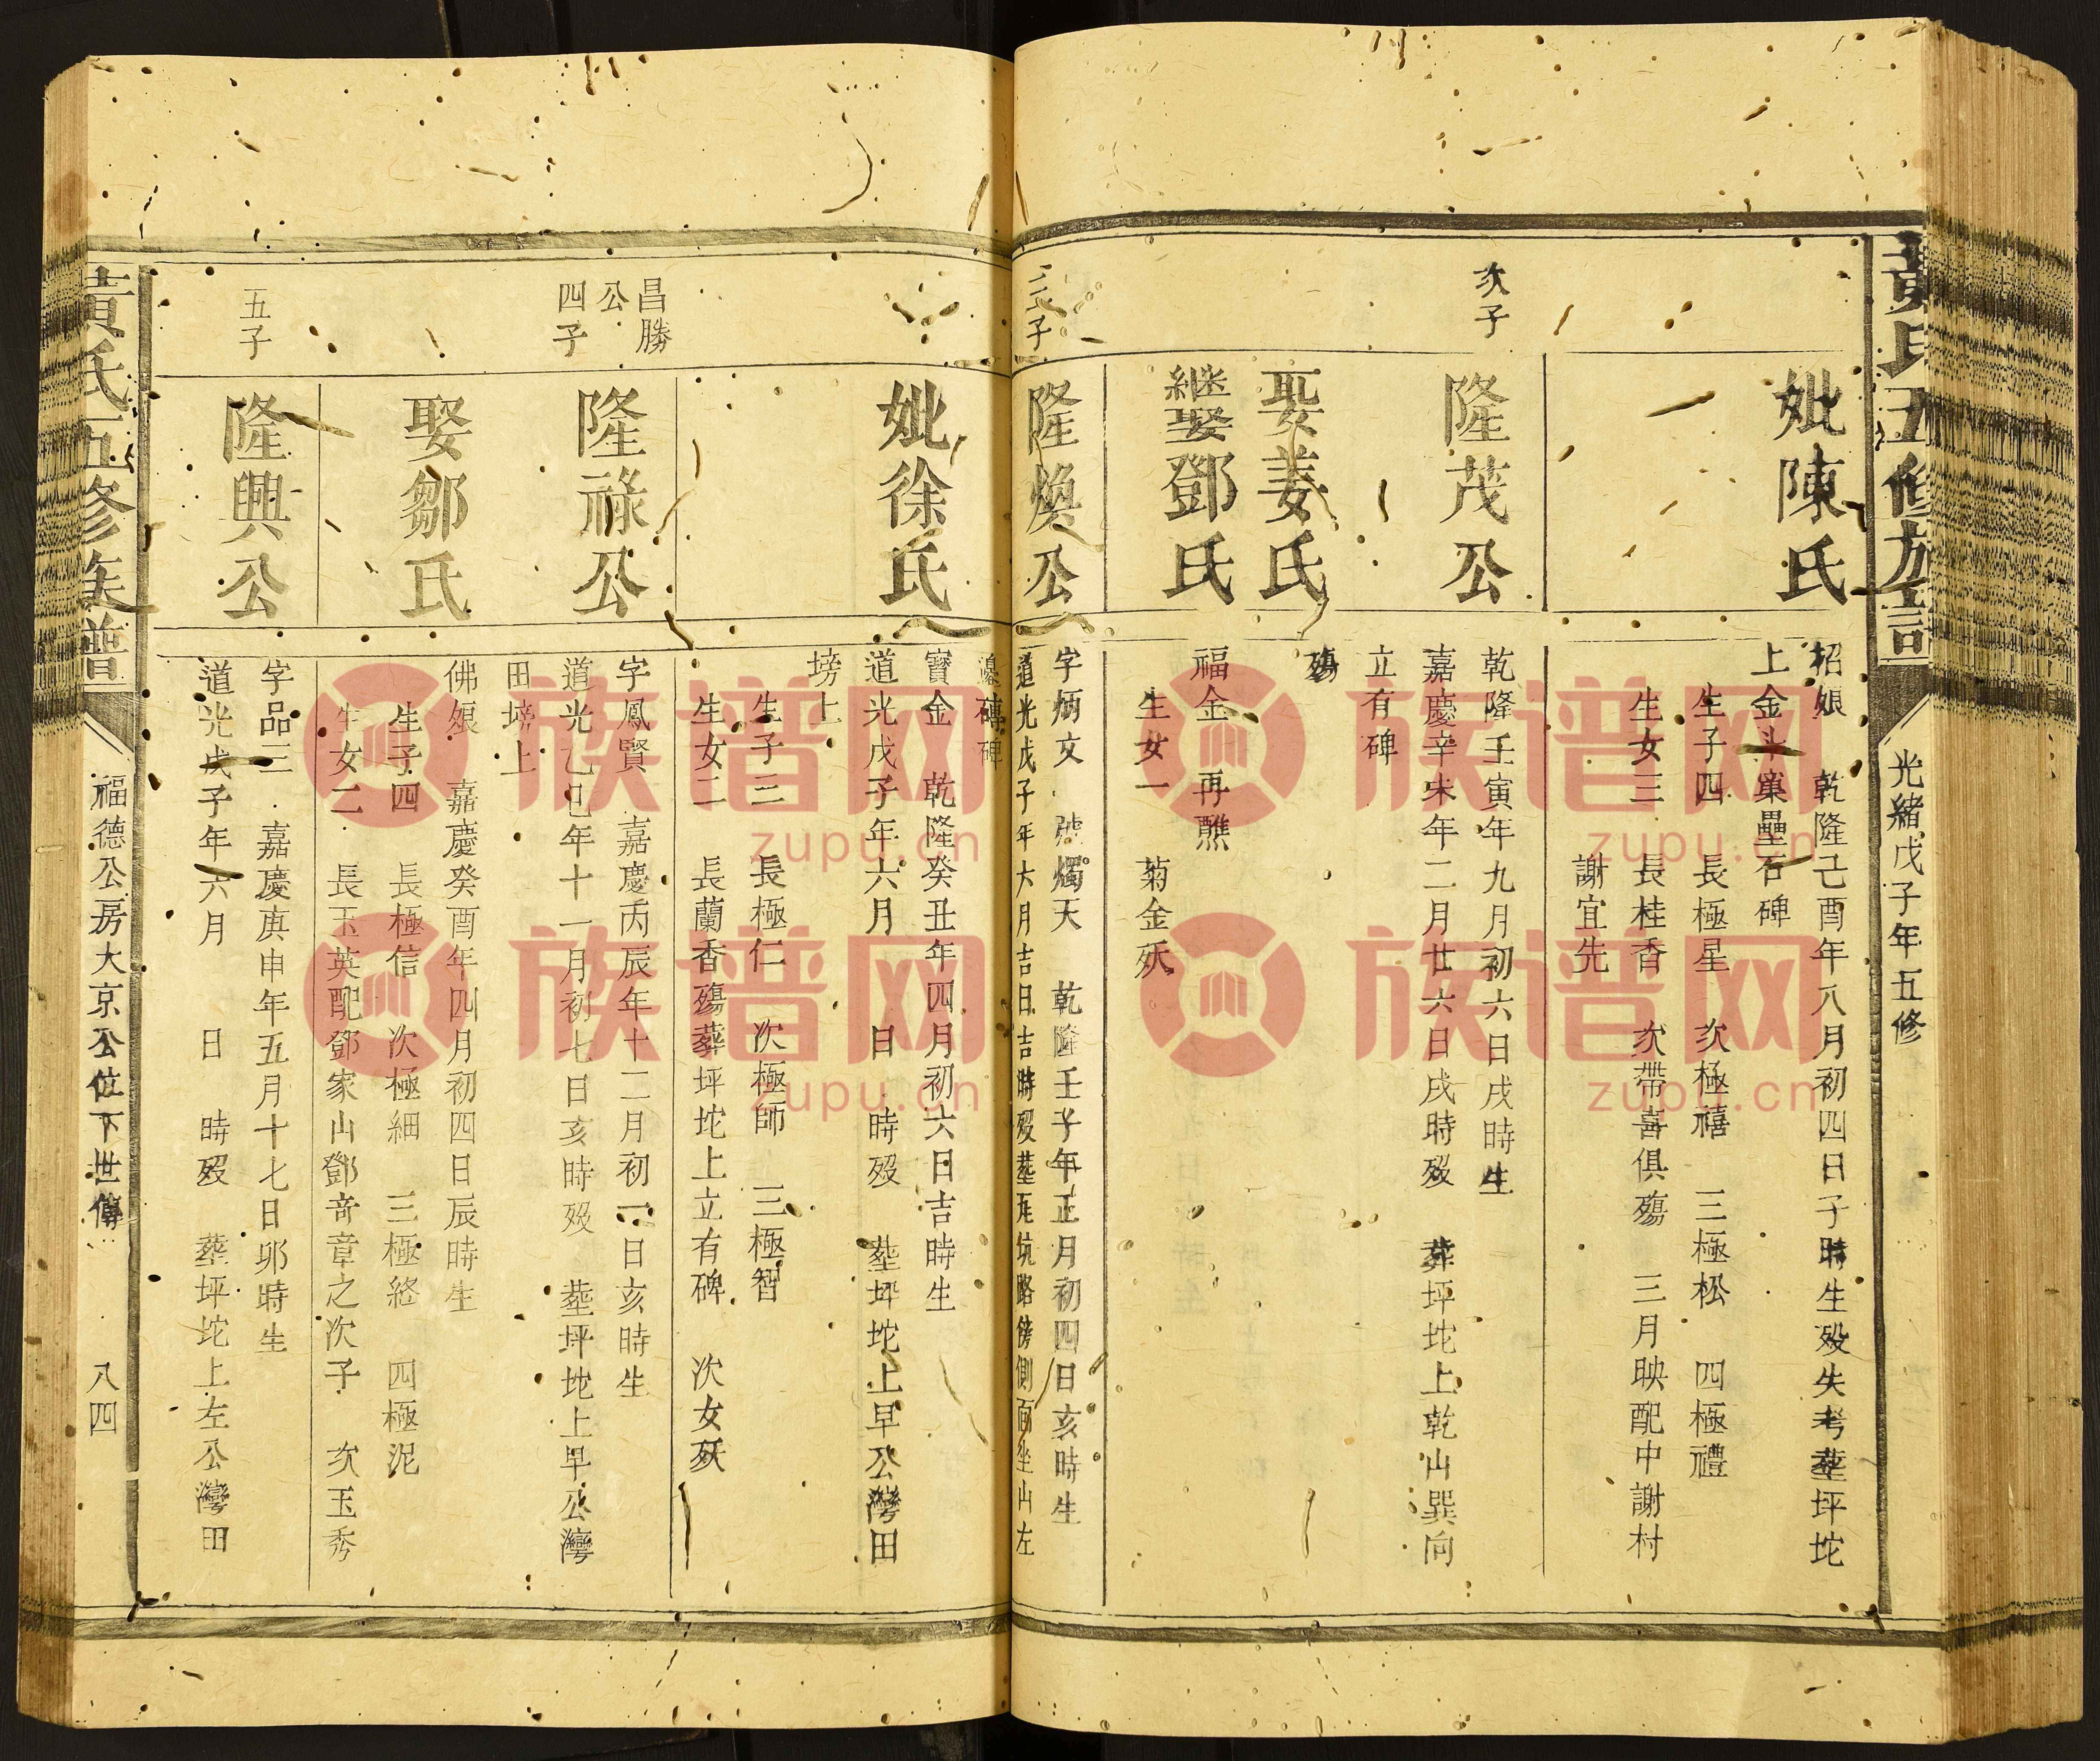 黃氏五修族譜
光緒戊子年五修
妣陳氏
招娘 乾隆己酉年八月初四日子時生歿失考塟坪坨
上金斗窠壘石碑
生子四 長極星 次極禧 三極松 四極禮
生女三 長桂香 次帶喜俱殤 三月映配中謝村
謝宜先
次子
隆茂公
乾隆壬寅年九月初六日戌時生
嘉慶辛未年二月廿六日戌時歿 葬坪坨上乾山巽向
立有碑
娶姜氏
殤
繼娶鄧氏
福金 再醮
生女一 菊金殀
三子
隆煥公
字炳文 號燭天 乾隆壬子年正月初四日亥時生
道光戊子年六月吉日吉時歿塟坑略傍側面坐山左
邊磚碑
妣徐氏
寶金 乾隆癸丑年四月初六日吉時生
道光戊子年六月 日 時歿 塟坪坨上早公灣田
塝上
生子三 長極仁 次極師 三極智
生女二 長蘭香殤葬坪坨上立有碑 次女殀
昌勝
公
四子
隆祿公
字鳳賢 嘉慶丙辰年十二月初一日亥時生
道光乙巳年十一月初七日亥時歿 塟坪坨上早公灣
田塝上
娶鄒氏
佛娘 嘉慶癸酉年四月初四日辰時生
生子四 長極信 次極細 三極終 四極泥
生女二 長玉英配鄧家山鄧奇章之次子 次玉秀
五子
隆興公
字品三 嘉慶庚申年五月十七日卯時生
道光戊子年六月 日 時歿 塟坪坨上左公灣田
黃氏五修族譜
福德公房大京公位下世傳
八四
族谱网
zupu.cn
族谱网
zupu.cn
族谱网
zupu.cn
族谱网
zupu.cn